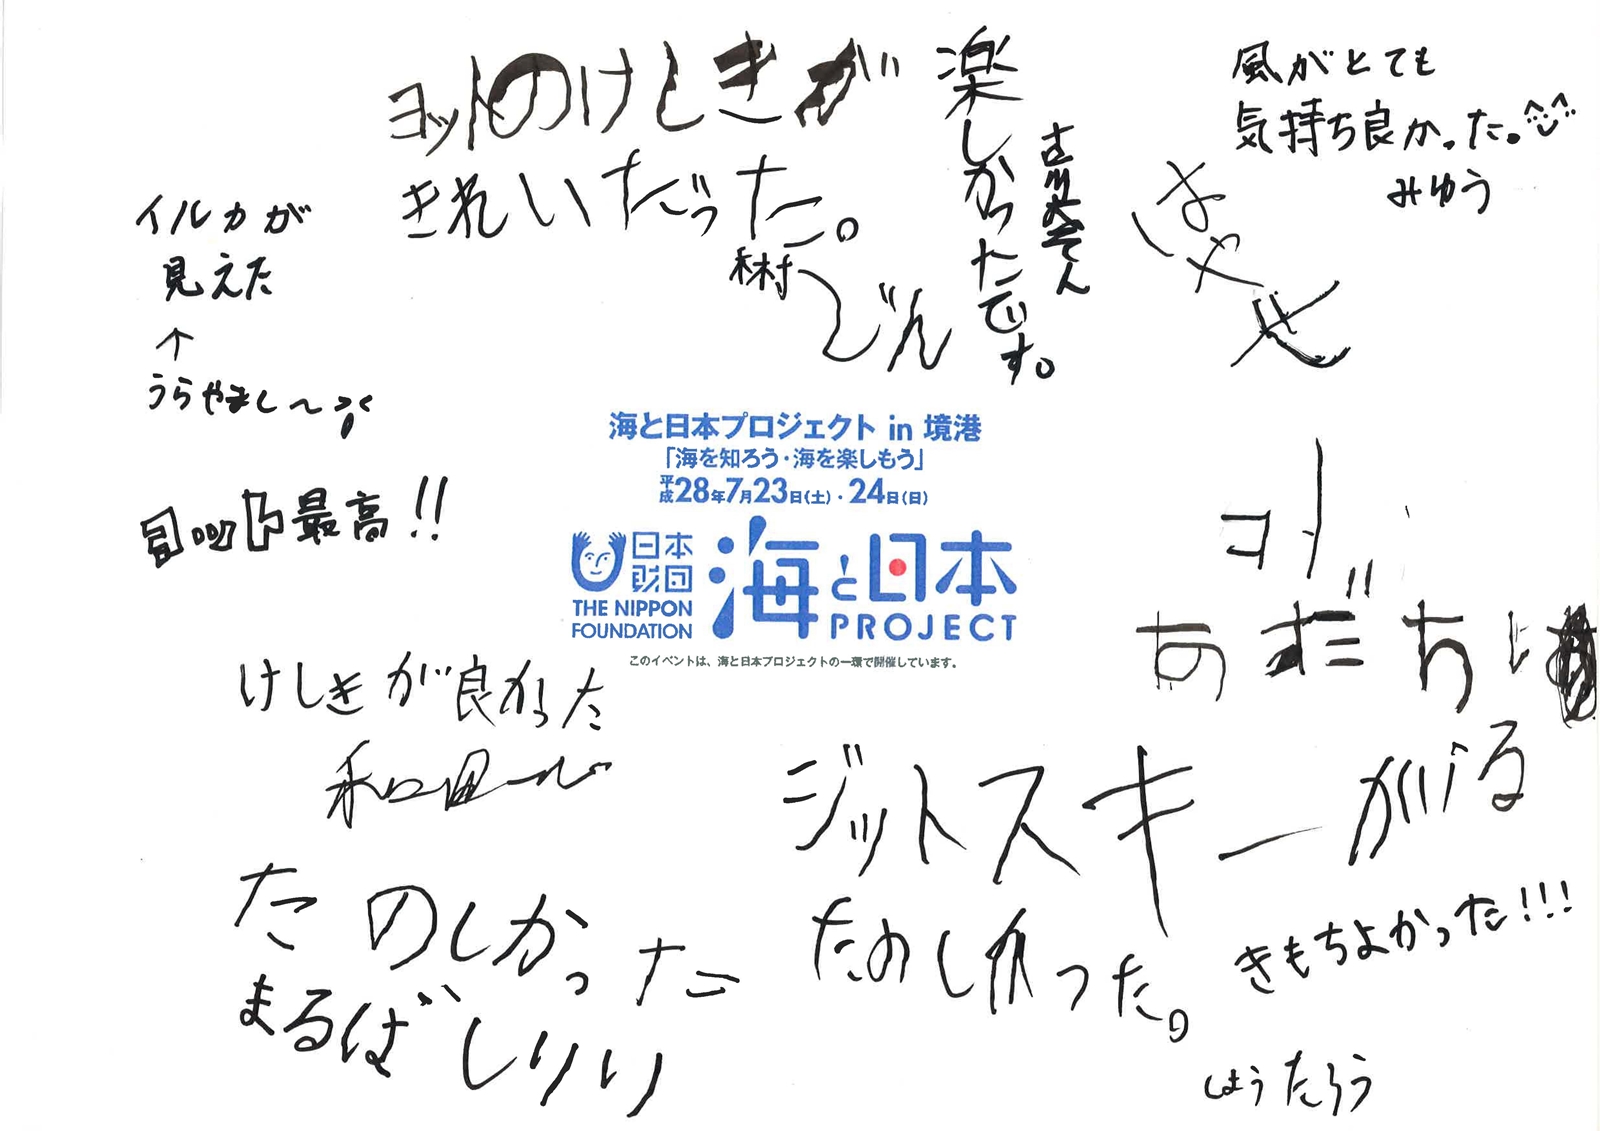 ヨットのけしきが
きれいだった。
楽しかったです。
風がとても
気持ち良かった。
みゆう
はやせ
イルカが
見えた
↑
うらやまし〜
ヨット最高!!
海と日本プロジェクト in 境港
「海を知ろう・海を楽しもう」
平成28年7月23日(土)・24日(日)
日本財団
THE NIPPON FOUNDATION
海と日本
PROJECT
このイベントは、海と日本プロジェクトの一環で開催しています。
けしきが良かった
たのしかった
まるばし
ジットスキーがる
たのしかった。
きもちよかった!!!
しょうたろう